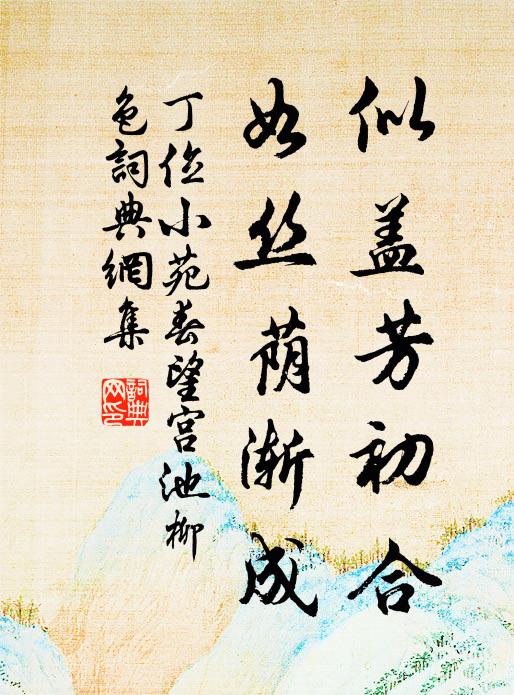 似盖芳初合
如丝荫渐成
丁位小苑春望宫池柳
色詞典網集
詞典
网印